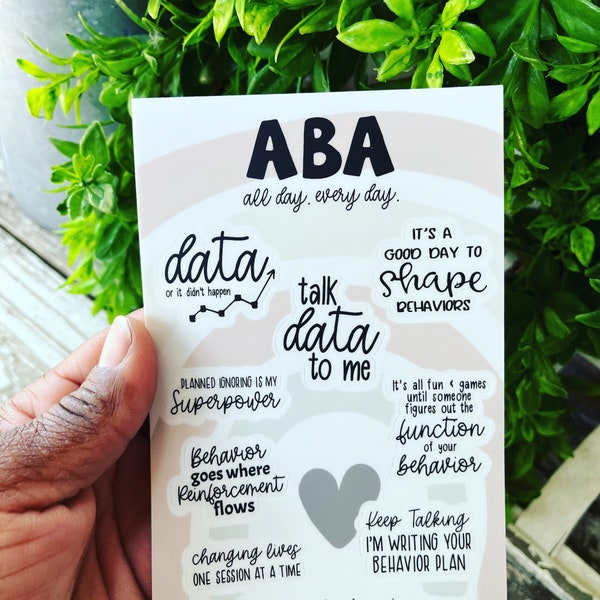 ABA
all day. every day.
data
or it didn't happen
IT'S A
GOOD DAY TO
Shape
BEHAVIORS
talk
data
to me
PLANNED IGNORING IS MY
Superpower
It's all fun & games
until someone
figures out the
function
of your
behavior
Behavior
goes where
Reinforcement
flows
Keep Talking
I'M WRITING YOUR
BEHAVIOR PLAN
changing lives
ONE SESSION AT A TIME